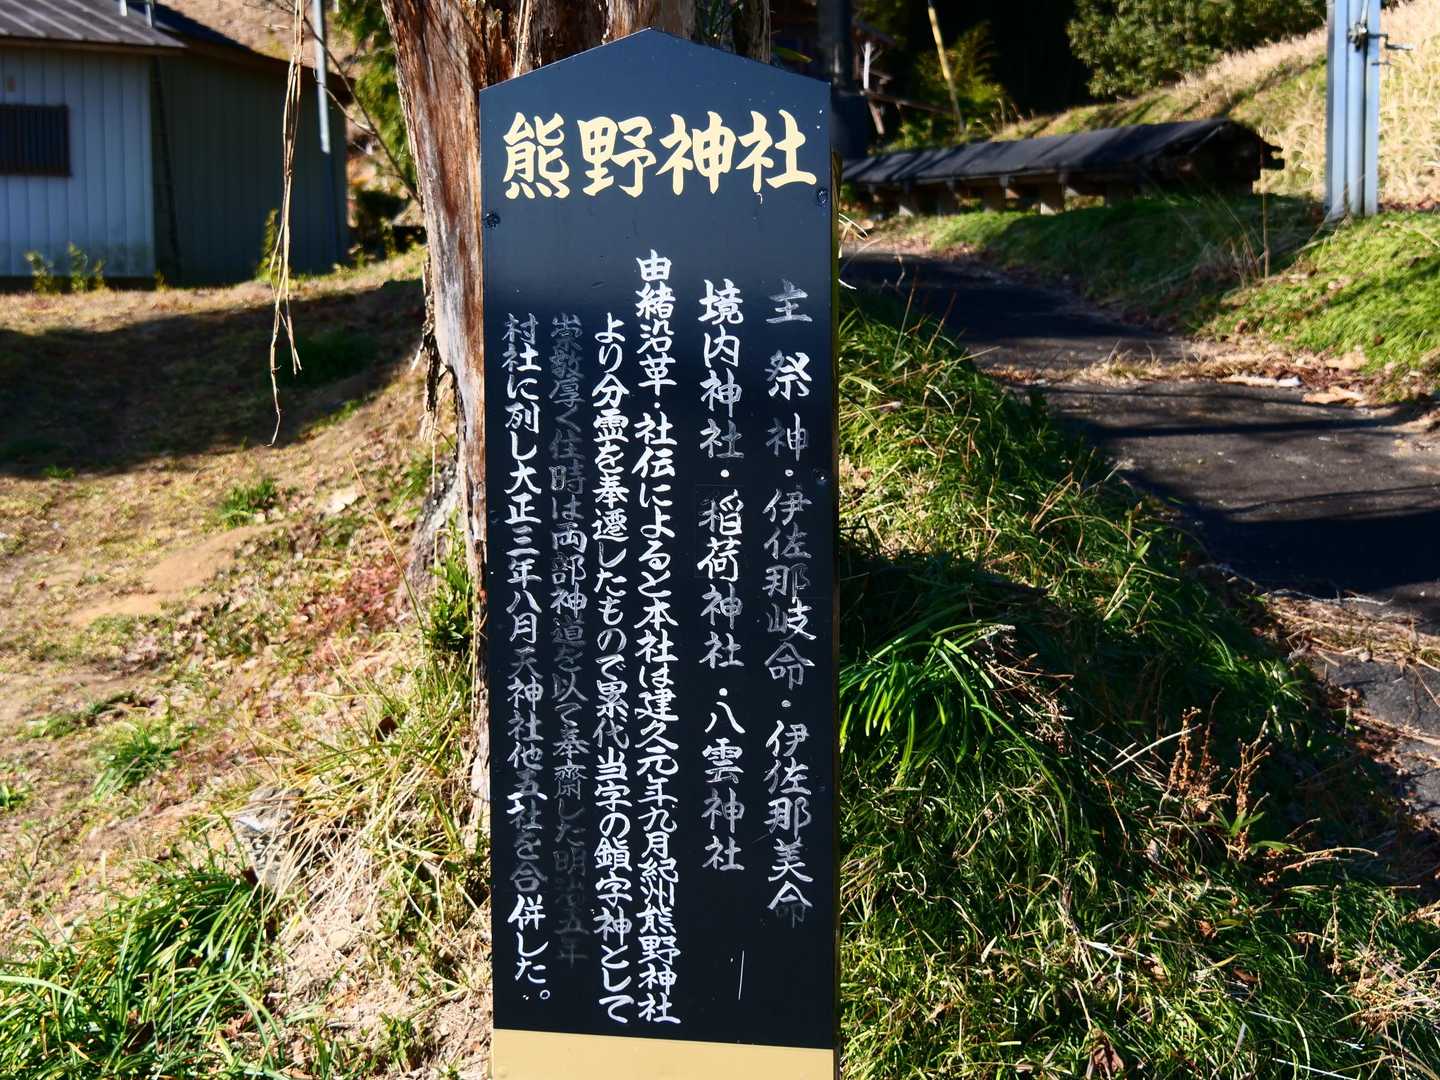 熊野神社
主祭神・伊佐那岐命・伊佐那美命
境内神社・稲荷神社・八雲神社
由緒沿革・社伝によると本社は建久元年九月紀州熊野神社
より分霊を奉遷したもので累代当字の鎮守神として
崇敬厚く住時は両部神道を以て奉齋した明治五年
村社に列し大正三年八月天神社他五社を合併した。